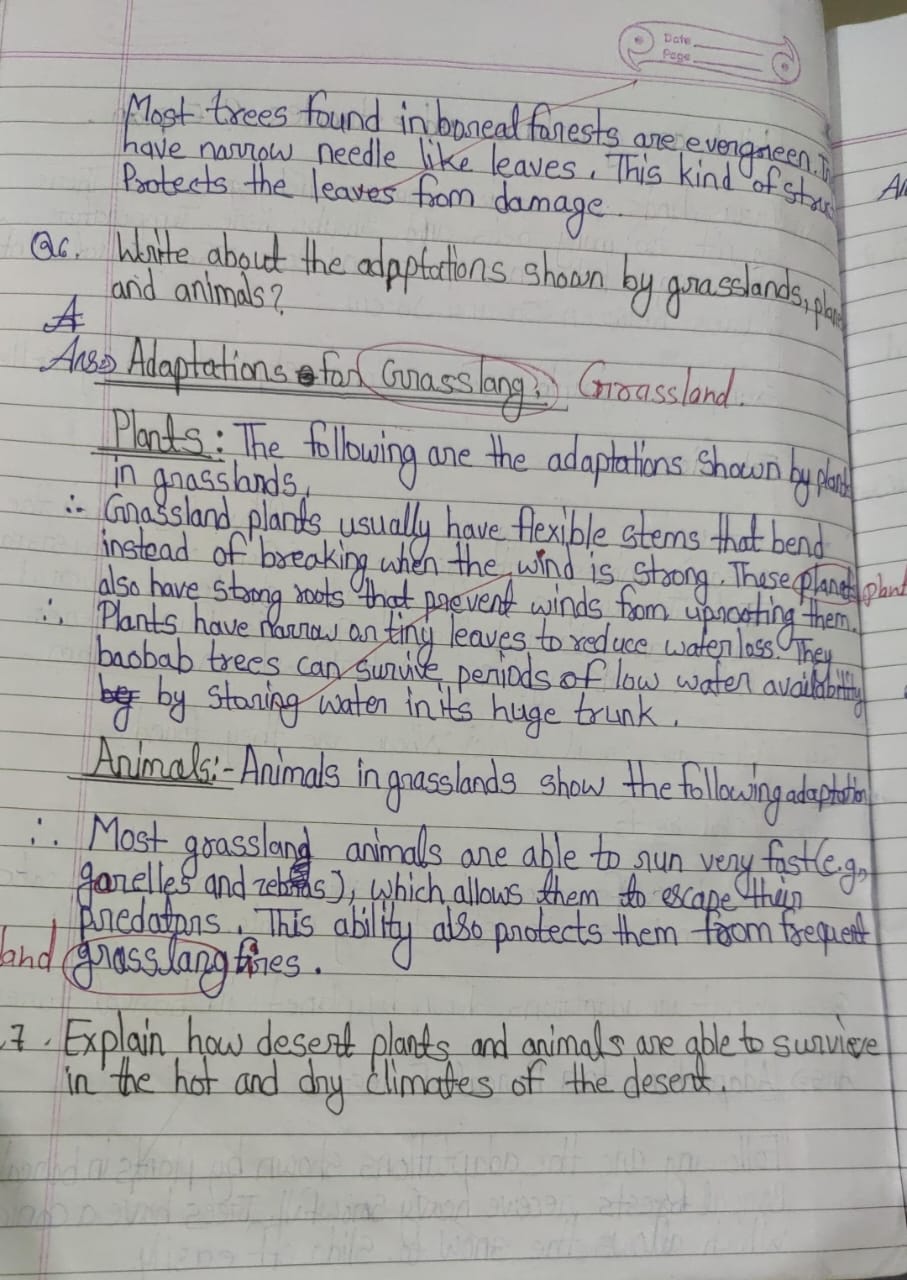 Date
Page
Most trees found in boreal forests are evergreen. T
have narrow needle like leaves. This kind of struc
Protects the leaves from damage.
Q6. Write about the adaptations shown by grasslands, plan
and animals?
A
Ans⇒ Adaptations for Grasslang: Grassland.
Plants: The following are the adaptations shown by plant
in grasslands,
∴ Grassland plants usually have flexible stems that bend
instead of breaking when the wind is strong. These planet plant
also have strong roots that prevent winds from uprooting them.
∴ Plants have narrow or tiny leaves to reduce water loss. They
baobab trees can survive periods of low water availability
by by storing water in its huge trunk.
Animals:- Animals in grasslands show the following adaptation
∴ Most grassland animals are able to run very fast (e.g,
gazelles and zebras), which allows them to escape their
predators. This ability also protects them from frequent
land grasslang fires.
7. Explain how desert plants and animals are able to survieve
in the hot and dry climates of the desert.